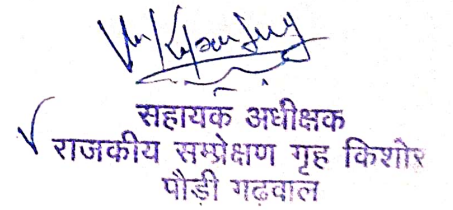 सहायक अधीक्षक
राजकीय सम्प्रेक्षण गृह किशोर
पौड़ी गढ़वाल